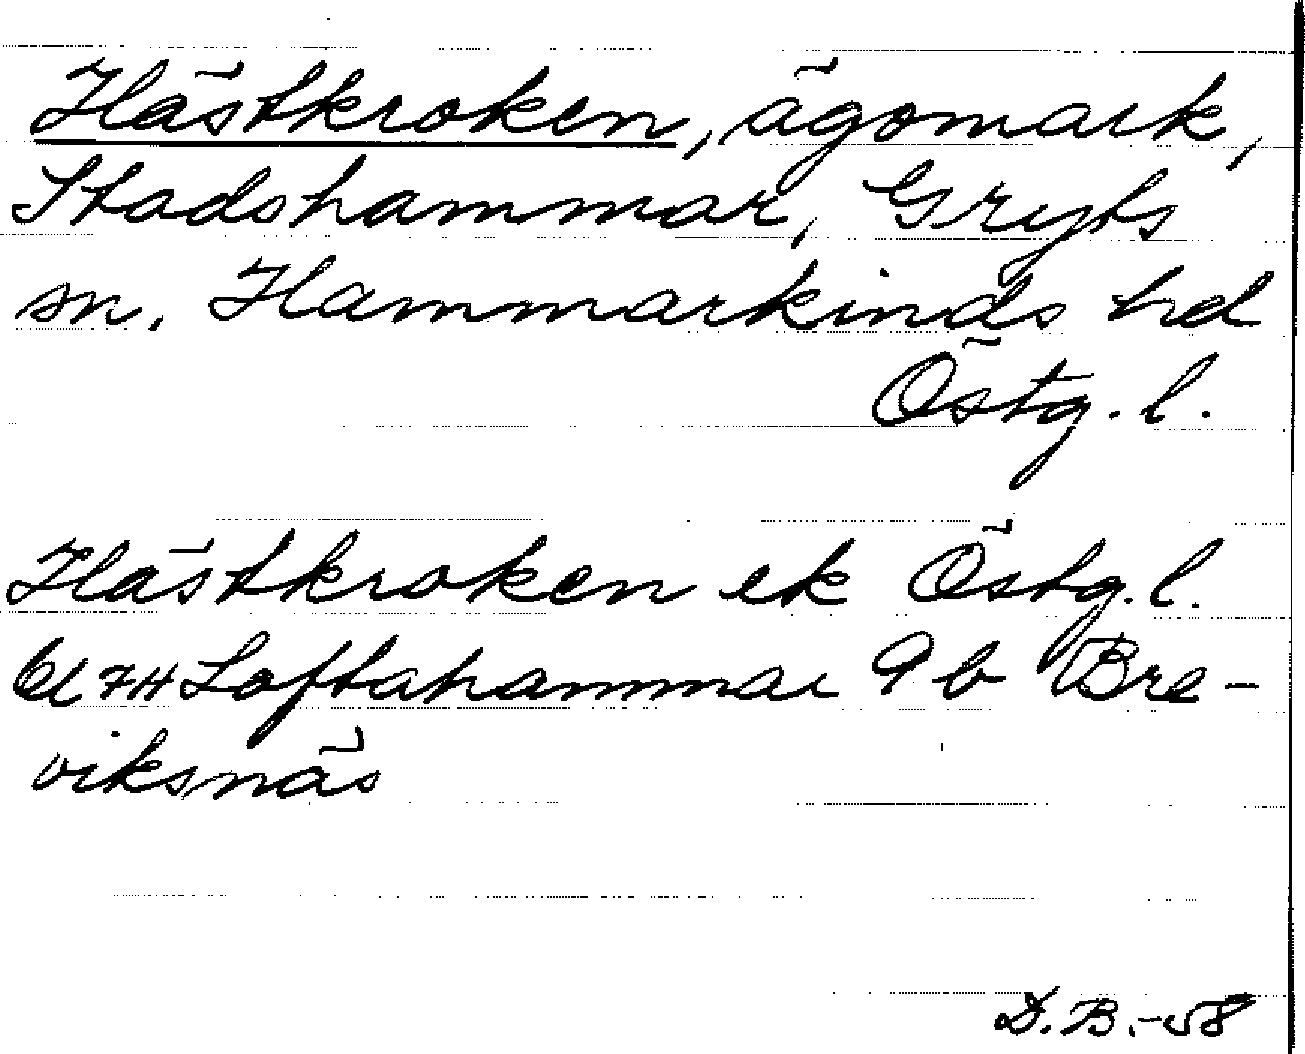 Hästkroken, ägomark,
Stadshammar, Gryts
sn. Hammarkinds hd
Östg. l.
Hästkroken ek Östg. l.
7H Loftahammar 9 b Bre-
viksnäs
D.B.-58